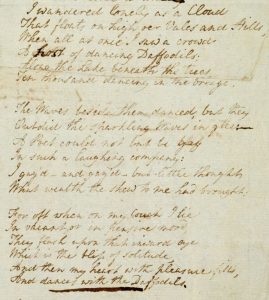 I wandered lonely as a Cloud
That floats on high o'er Vales and Hills,
When all at once I saw a crowd
A host of dancing Daffodils;
Along the Lake, beneath the trees,
Ten thousand dancing in the breeze.
The Waves beside them danced, but they
Outdid the sparkling Waves in glee:—
A Poet could not but be gay
In such a laughing company:
I gaz'd – and gaz'd – but little thought
What wealth the shew to me had brought.
For oft when on my couch I lie
In vacant or in pensive mood,
They flash upon that inward eye
Which is the bliss of solitude,
And then my heart with pleasure fills,
And dances with the Daffodils.